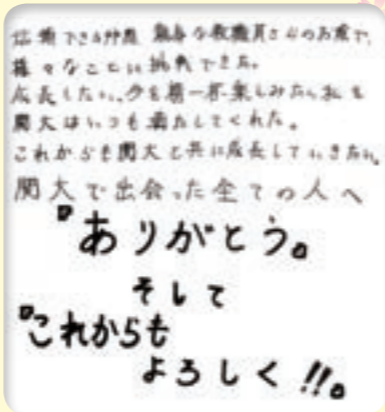 信頼できる仲間、熱心な教職員さんのお蔭で、
様々なことに挑戦できた。
成長したい、今を精一杯楽しみたい私を
関大はいつも満たしてくれた。
これからも関大と共に成長していきたい。
関大で出会った全ての人へ
『ありがとう。』
そして
『これからも
よろしく!!』